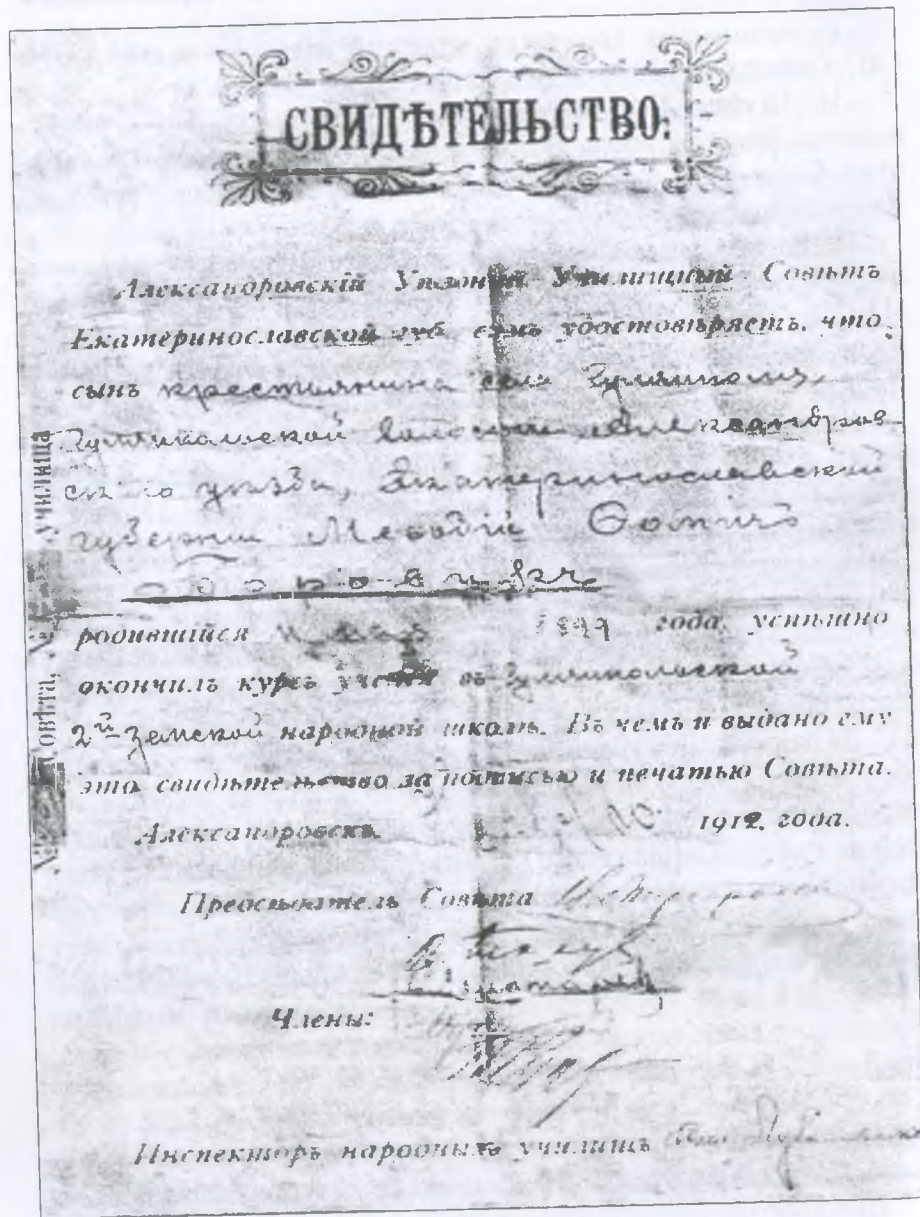 СВИДѢТЕЛЬСТВО.
Александровскій Уѣздный Училищный Совѣтъ
Екатеринославской губ. симъ удостовѣряетъ, что
сынъ крестьянина села Гуляйполя,
Гуляйпольской волости Александров-
скаго уѣзда, Екатеринославской
губерніи Меѳодій Ѳомичъ
родившійся 1899 года, успѣшно
окончилъ курсъ ученія въ Гуляйпольской
2й земской народной школѣ. Въ чемъ и выдано ему
это свидѣтельство за подписью и печатью Совѣта.
Александровскъ. 1912 года.
Предсѣдатель Совѣта
Члены:
Инспекторъ народныхъ училищъ
Совѣта, училища